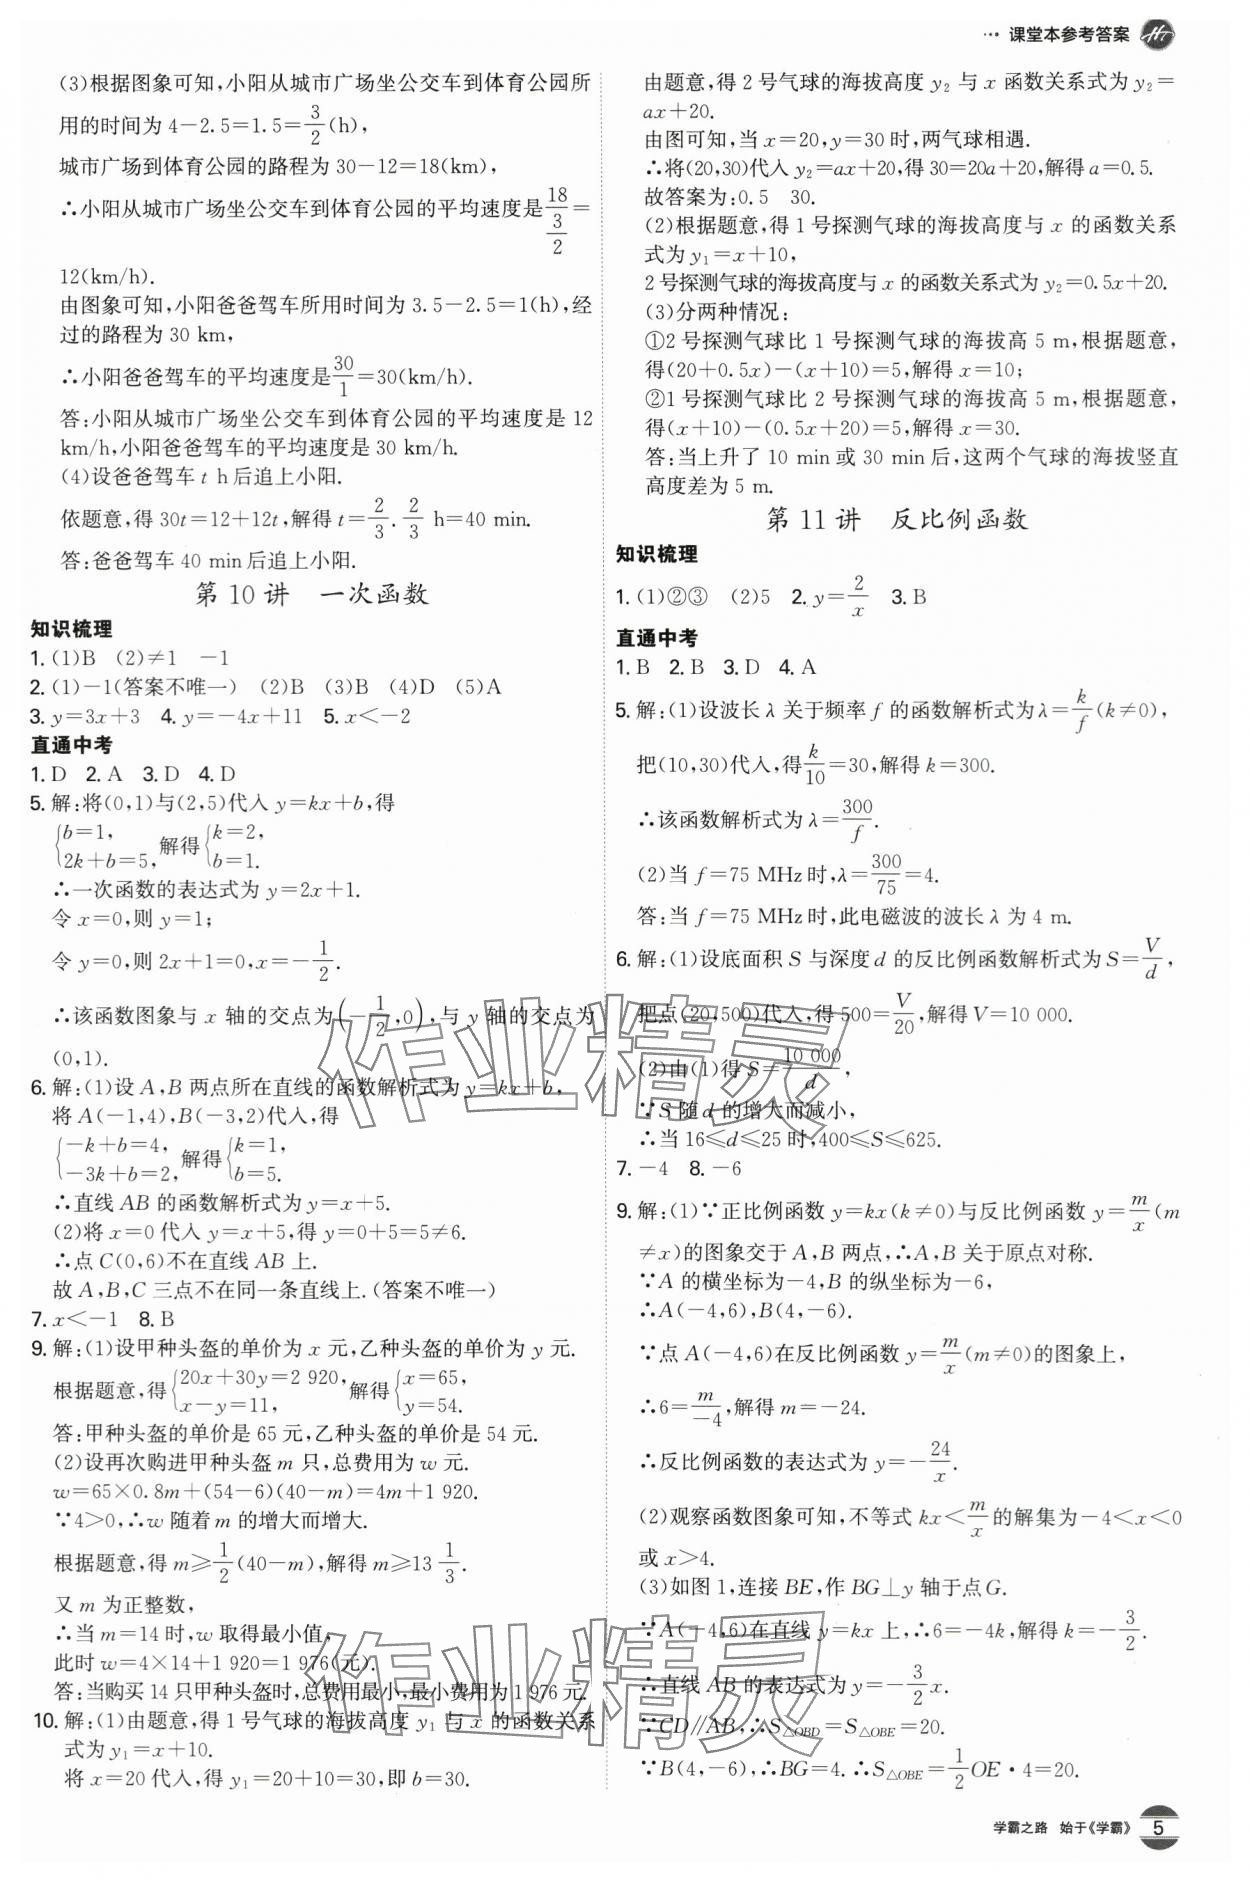 ··· 课堂本参考答案
(3)根据图象可知,小阳从城市广场坐公交车到体育公园所
用的时间为 4-2.5=1.5=3/2(h),
城市广场到体育公园的路程为 30-12=18(km),
∴小阳从城市广场坐公交车到体育公园的平均速度是18/(3/2)=
12(km/h).
由图象可知,小阳爸爸驾车所用时间为 3.5-2.5=1(h),经
过的路程为 30 km,
∴小阳爸爸驾车的平均速度是30/1=30(km/h).
答:小阳从城市广场坐公交车到体育公园的平均速度是 12
km/h,小阳爸爸驾车的平均速度是 30 km/h.
(4)设爸爸驾车 t h后追上小阳.
依题意,得 30t=12+12t,解得 t=2/3. 2/3 h=40 min.
答:爸爸驾车 40 min后追上小阳.
第 10 讲 一次函数
知识梳理
1. (1)B (2)≠1 -1
2. (1)-1(答案不唯一) (2)B (3)B (4)D (5)A
3. y=3x+3 4. y=-4x+11 5. x<-2
直通中考
1. D 2. A 3. D 4. D
5. 解:将(0,1)与(2,5)代入 y=kx+b,得
{b=1, 2k+b=5, 解得{k=2, b=1.
∴一次函数的表达式为 y=2x+1.
令 x=0,则 y=1;
令 y=0,则 2x+1=0,x=-1/2.
∴该函数图象与 x 轴的交点为(-1/2,0),与 y 轴的交点为
(0,1).
6. 解:(1)设 A,B 两点所在直线的函数解析式为 y=kx+b,
将 A(-1,4),B(-3,2)代入,得
{-k+b=4, -3k+b=2, 解得{k=1, b=5.
∴直线 AB 的函数解析式为 y=x+5.
(2)将 x=0 代入 y=x+5,得 y=0+5=5≠6.
∴点 C(0,6)不在直线 AB 上.
故 A,B,C 三点不在同一条直线上.(答案不唯一)
7. x<-1 8. B
9. 解:(1)设甲种头盔的单价为 x 元,乙种头盔的单价为 y 元.
根据题意,得{20x+30y=2 920, x-y=11, 解得{x=65, y=54.
答:甲种头盔的单价是 65 元,乙种头盔的单价是 54 元.
(2)设再次购进甲种头盔 m 只,总费用为 w 元.
w=65×0.8m+(54-6)(40-m)=4m+1 920.
∵4>0,∴w 随着 m 的增大而增大.
根据题意,得 m≥1/2(40-m),解得 m≥13 1/3.
又 m 为正整数,
∴当 m=14 时,w 取得最小值,
此时 w=4×14+1 920=1 976(元).
答:当购买 14 只甲种头盔时,总费用最小,最小费用为 1 976 元.
10. 解:(1)由题意,得 1 号气球的海拔高度 y₁ 与 x 的函数关系
式为 y₁=x+10.
将 x=20代入,得 y₁=20+10=30,即 b=30.
由题意,得 2 号气球的海拔高度 y₂ 与 x 函数关系式为 y₂=
ax+20.
由图可知,当 x=20,y=30 时,两气球相遇.
∴将(20,30)代入 y₂=ax+20,得 30=20a+20,解得 a=0.5.
故答案为:0.5 30.
(2)根据题意,得 1 号探测气球的海拔高度与 x 的函数关系
式为 y₁=x+10,
2 号探测气球的海拔高度与 x 的函数关系式为 y₂=0.5x+20.
(3)分两种情况:
①2 号探测气球比 1 号探测气球的海拔高 5 m,根据题意,
得(20+0.5x)-(x+10)=5,解得 x=10;
②1 号探测气球比 2 号探测气球的海拔高 5 m,根据题意,
得(x+10)-(0.5x+20)=5,解得 x=30.
答:当上升了 10 min 或 30 min 后,这两个气球的海拔竖直
高度差为 5 m.
第 11 讲 反比例函数
知识梳理
1. (1)②③ (2)5 2. y=2/x 3. B
直通中考
1. B 2. B 3. D 4. A
5. 解:(1)设波长 λ 关于频率 f 的函数解析式为 λ=k/f(k≠0),
把(10,30)代入,得k/10=30,解得 k=300.
∴该函数解析式为 λ=300/f.
(2)当 f=75 MHz 时,λ=300/75=4.
答:当 f=75 MHz时,此电磁波的波长 λ 为 4 m.
6. 解:(1)设底面积 S 与深度 d 的反比例函数解析式为 S=V/d,
把点(20,500)代入,得 500=V/20,解得 V=10 000.
(2)由(1)得 S=10 000/d,
∵S 随 d 的增大而减小,
∴当 16≤d≤25 时,400≤S≤625.
7. -4 8. -6
9. 解:(1)∵正比例函数 y=kx(k≠0)与反比例函数 y=m/x(m
≠x)的图象交于 A,B 两点,∴A,B 关于原点对称.
∵A 的横坐标为-4,B 的纵坐标为-6,
∴A(-4,6),B(4,-6).
∵点 A(-4,6)在反比例函数 y=m/x(m≠0)的图象上,
∴6=m/-4,解得 m=-24.
∴反比例函数的表达式为 y=-24/x.
(2)观察函数图象可知,不等式 kx<m/x的解集为-4<x<0
或 x>4.
(3)如图 1,连接 BE,作 BG⊥y 轴于点 G.
∵A(-4,6)在直线 y=kx 上,∴6=-4k,解得 k=-3/2.
∴直线 AB 的表达式为 y=-3/2x.
∵CD//AB,∴S△OBD=S△OBE=20.
∵B(4,-6),∴BG=4.∴S△OBE=1/2OE·4=20.
学霸之路 始于《学霸》 5
作业精灵
作业精灵